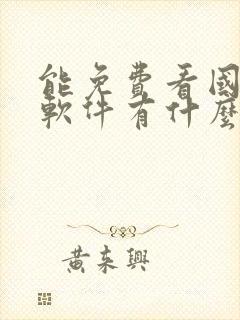 能免費看國
軟件有什麼
黃來興